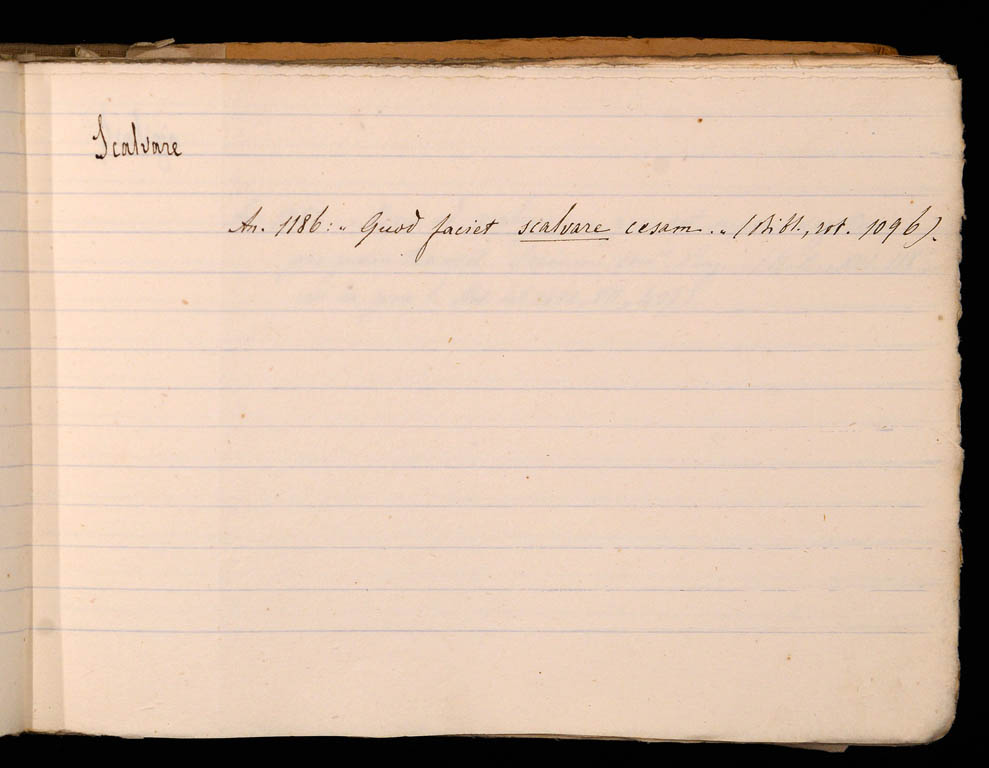 Scalvare
An. 1186: „ Quod faciet scalvare cesam „ (Bibl., rot. 1096).